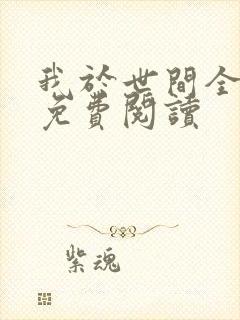 我於世間全
免費閱讀
紫魂